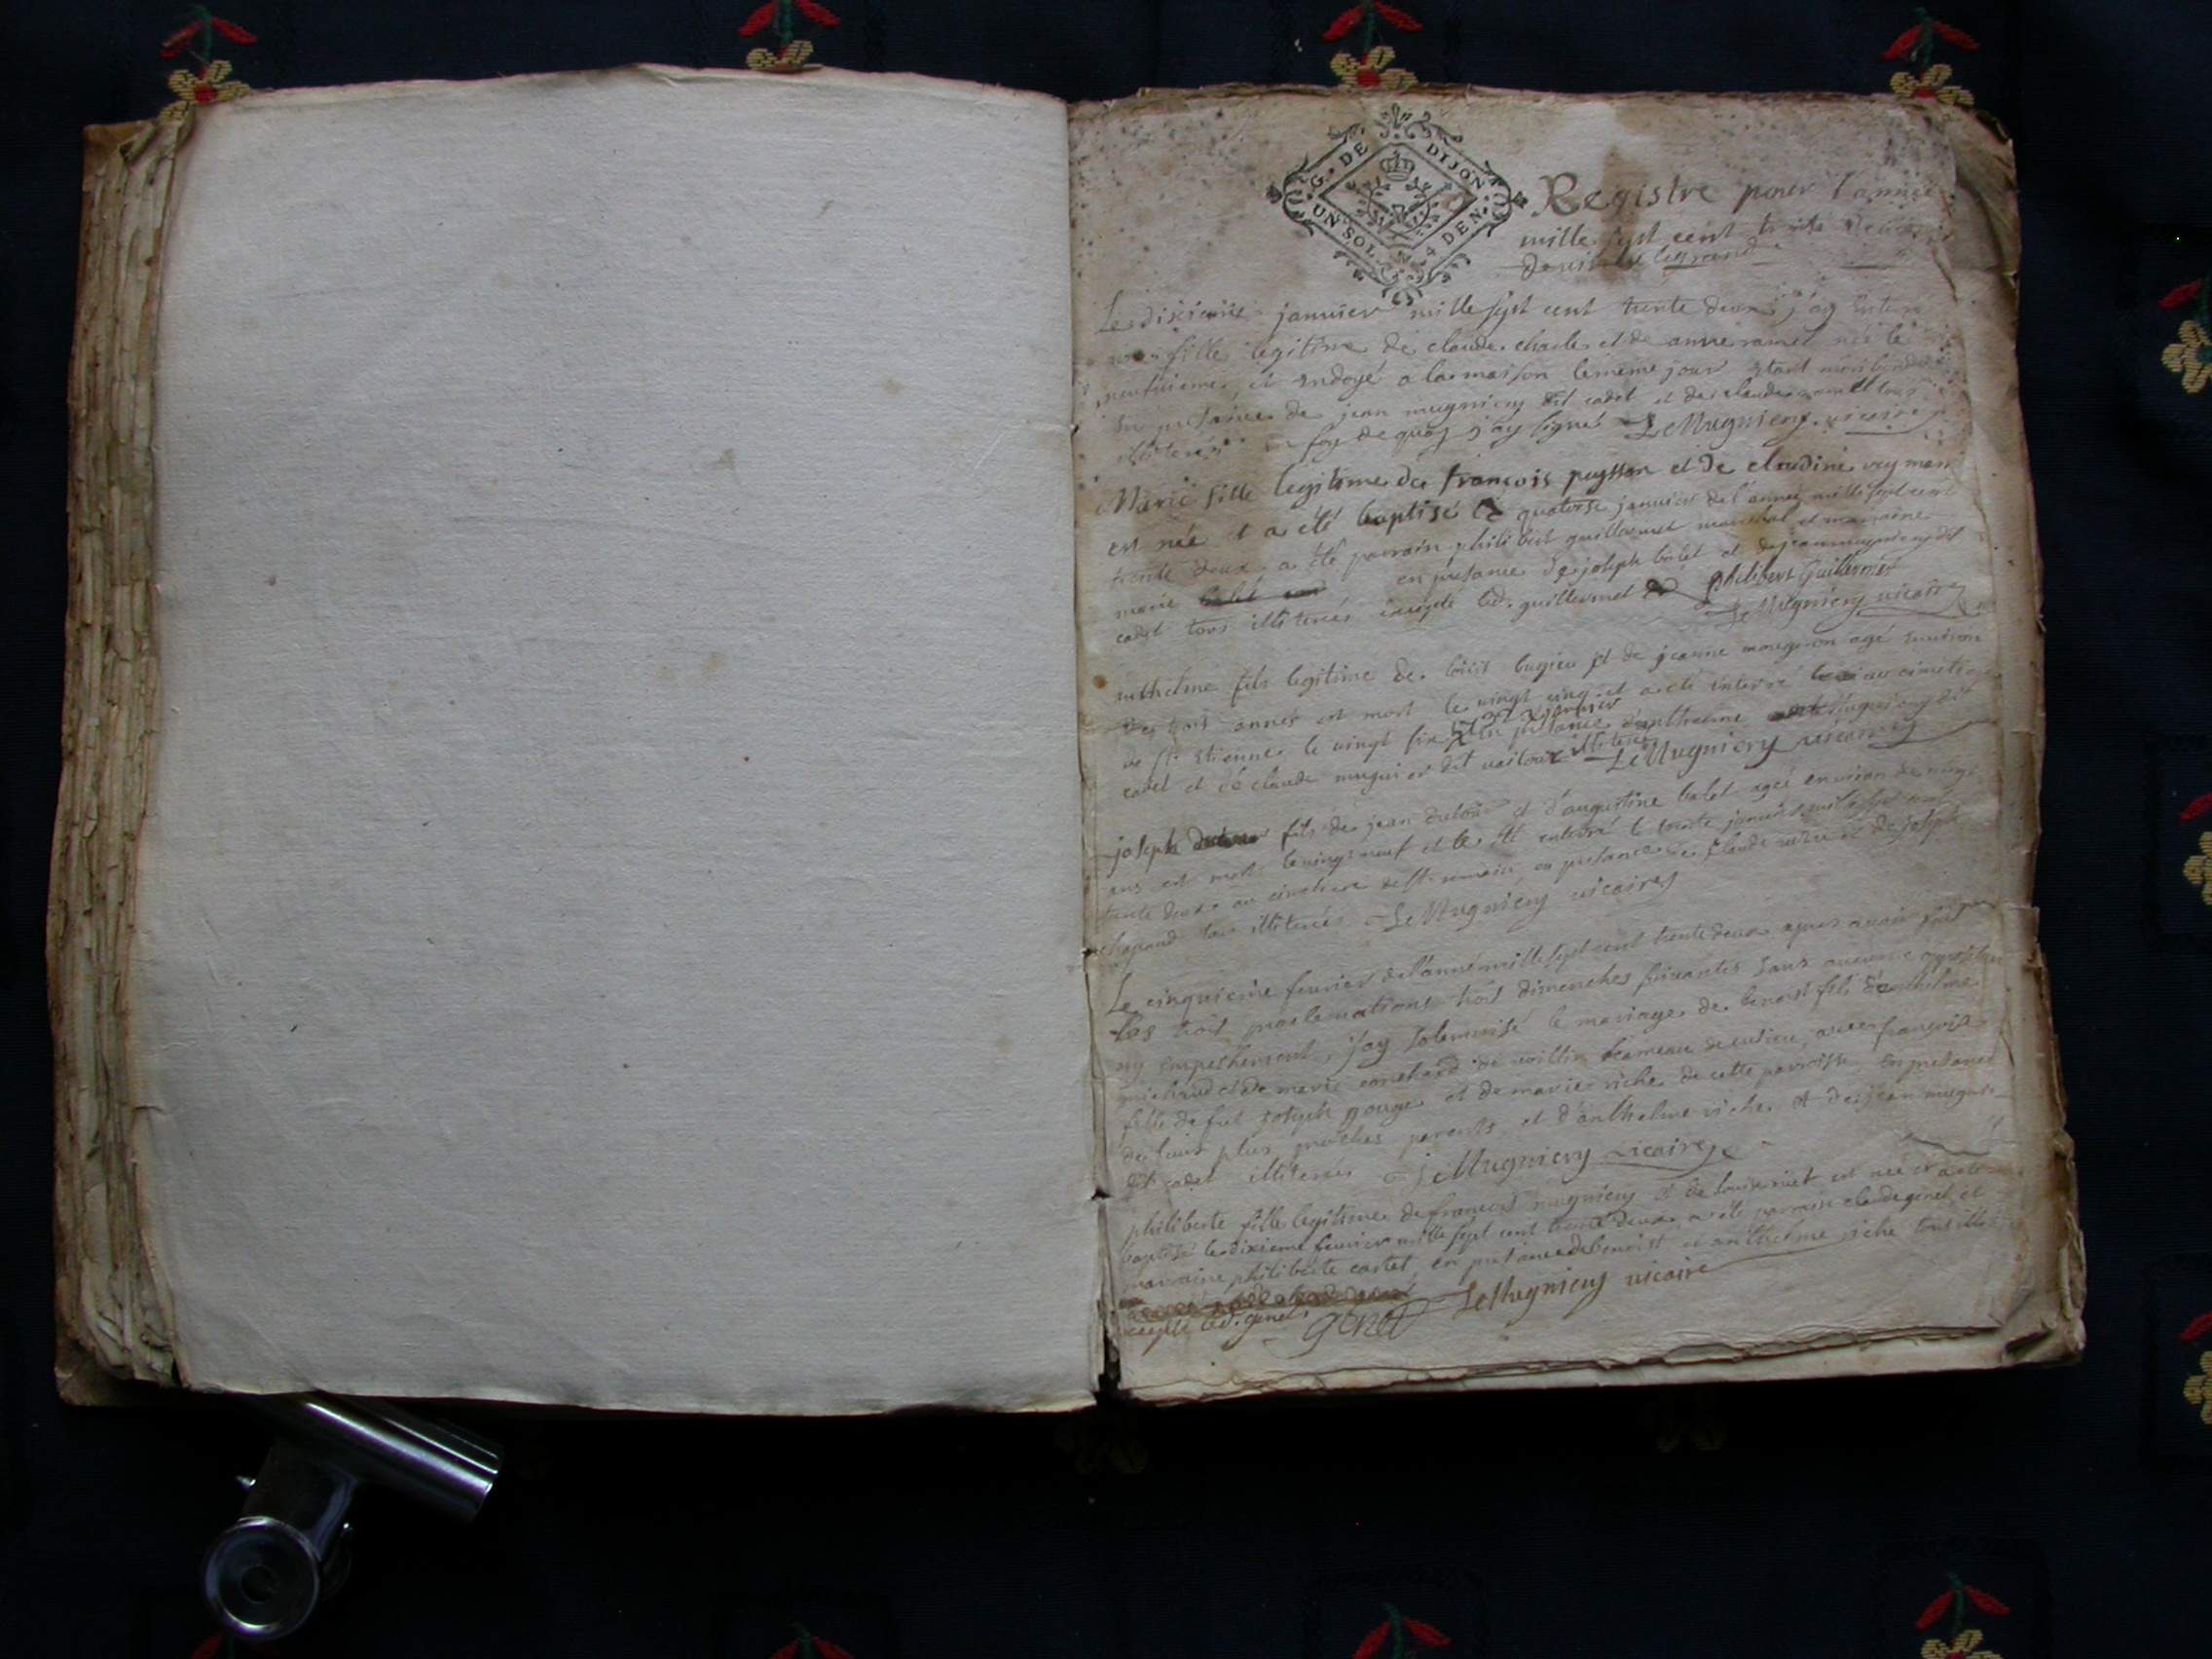 G. DE DIJON
UN SOL 4 DEN.
Registre pour l'année
mille sept cent trente deux
de legrand
Le dixieme janvier mille sept cent trente deux j'ay enterré
fille legitime de claude charle et de anne ramel née le
neufuieme et endoyé a la maison le meme jour etant moribonde
en presance de jean mugniery dit cadet et de claude tous
illiterés en foy de quoy j'ay signé Le Mugniery vicaire
Marie fille legitime de francois puysson et de claudine
est née et a été baptisé le quatorse janvier de l'année mille sept cent
trente deux a été parrain philibert guillermet marechal et marraine
marie en presance de joseph balet et de jean mugniery dit
cadet tous illiterés excepte led. guillermet philibert Guillermet
Le Mugniery vicaire
anthelme fils legitime de louis bugieu et de jeanne mougeon agé environ
des trois années est mort le vingt cinq et a été interré au cimetiere
de st. etienne le vingt six janvier en presance d'anthelme mugniery dit
cadet et de claude mugnier dit illiterés Le Mugniery vicaire
joseph fils de jean dutour et d'augustine balet agé environ de vingt
ans est mort le vingt neuf et a été enterré le trente janvier mille sept cent
trente deux au cimetiere de st. romain, en presance de claude et de joseph
chapand tous illiterés Le Mugniery vicaire
Le cinquieme feurier de l'année mille sept cent trente deux apres avoir fait
les trois proclamations trois dimenches suivantes sans aucune opposition
ny empechement, j'ay solemnisé le mariage de benoist fils d'anthelme
michaud et de marie conchard de hameau de avec françoise
fille de fut joseph gouge et de marie riche de cette paroisse en presance
de leurs plus proches parents et d'anthelme riche et de jean mugnier
dit cadet illiterés Le Mugniery vicaire
philiberte fille legitime de francois mugniery et de louise est née et a été
baptisé le dixieme feurier mille sept cent trente deux a été parrain claude genet, et
marraine philiberte cartet, en presance de benoist et anthelme riche tous illiterés
excepte led. genet genet Le Mugniery vicaire